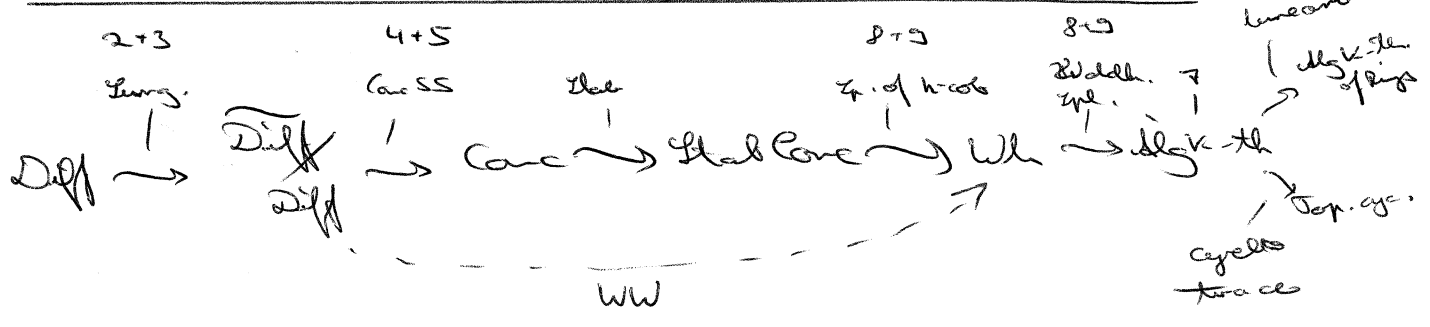 2+3 4+5 8+9 8+9
Surg. Conc SS Stab Sp. of h-cob Waldh. Spl. 7 linear
Alg K-th. of Rings
Diff → Diff/Diff → Conc → Stab Conc → Wh → Alg K-th
Top. cyc.
WW
cyclo
trace